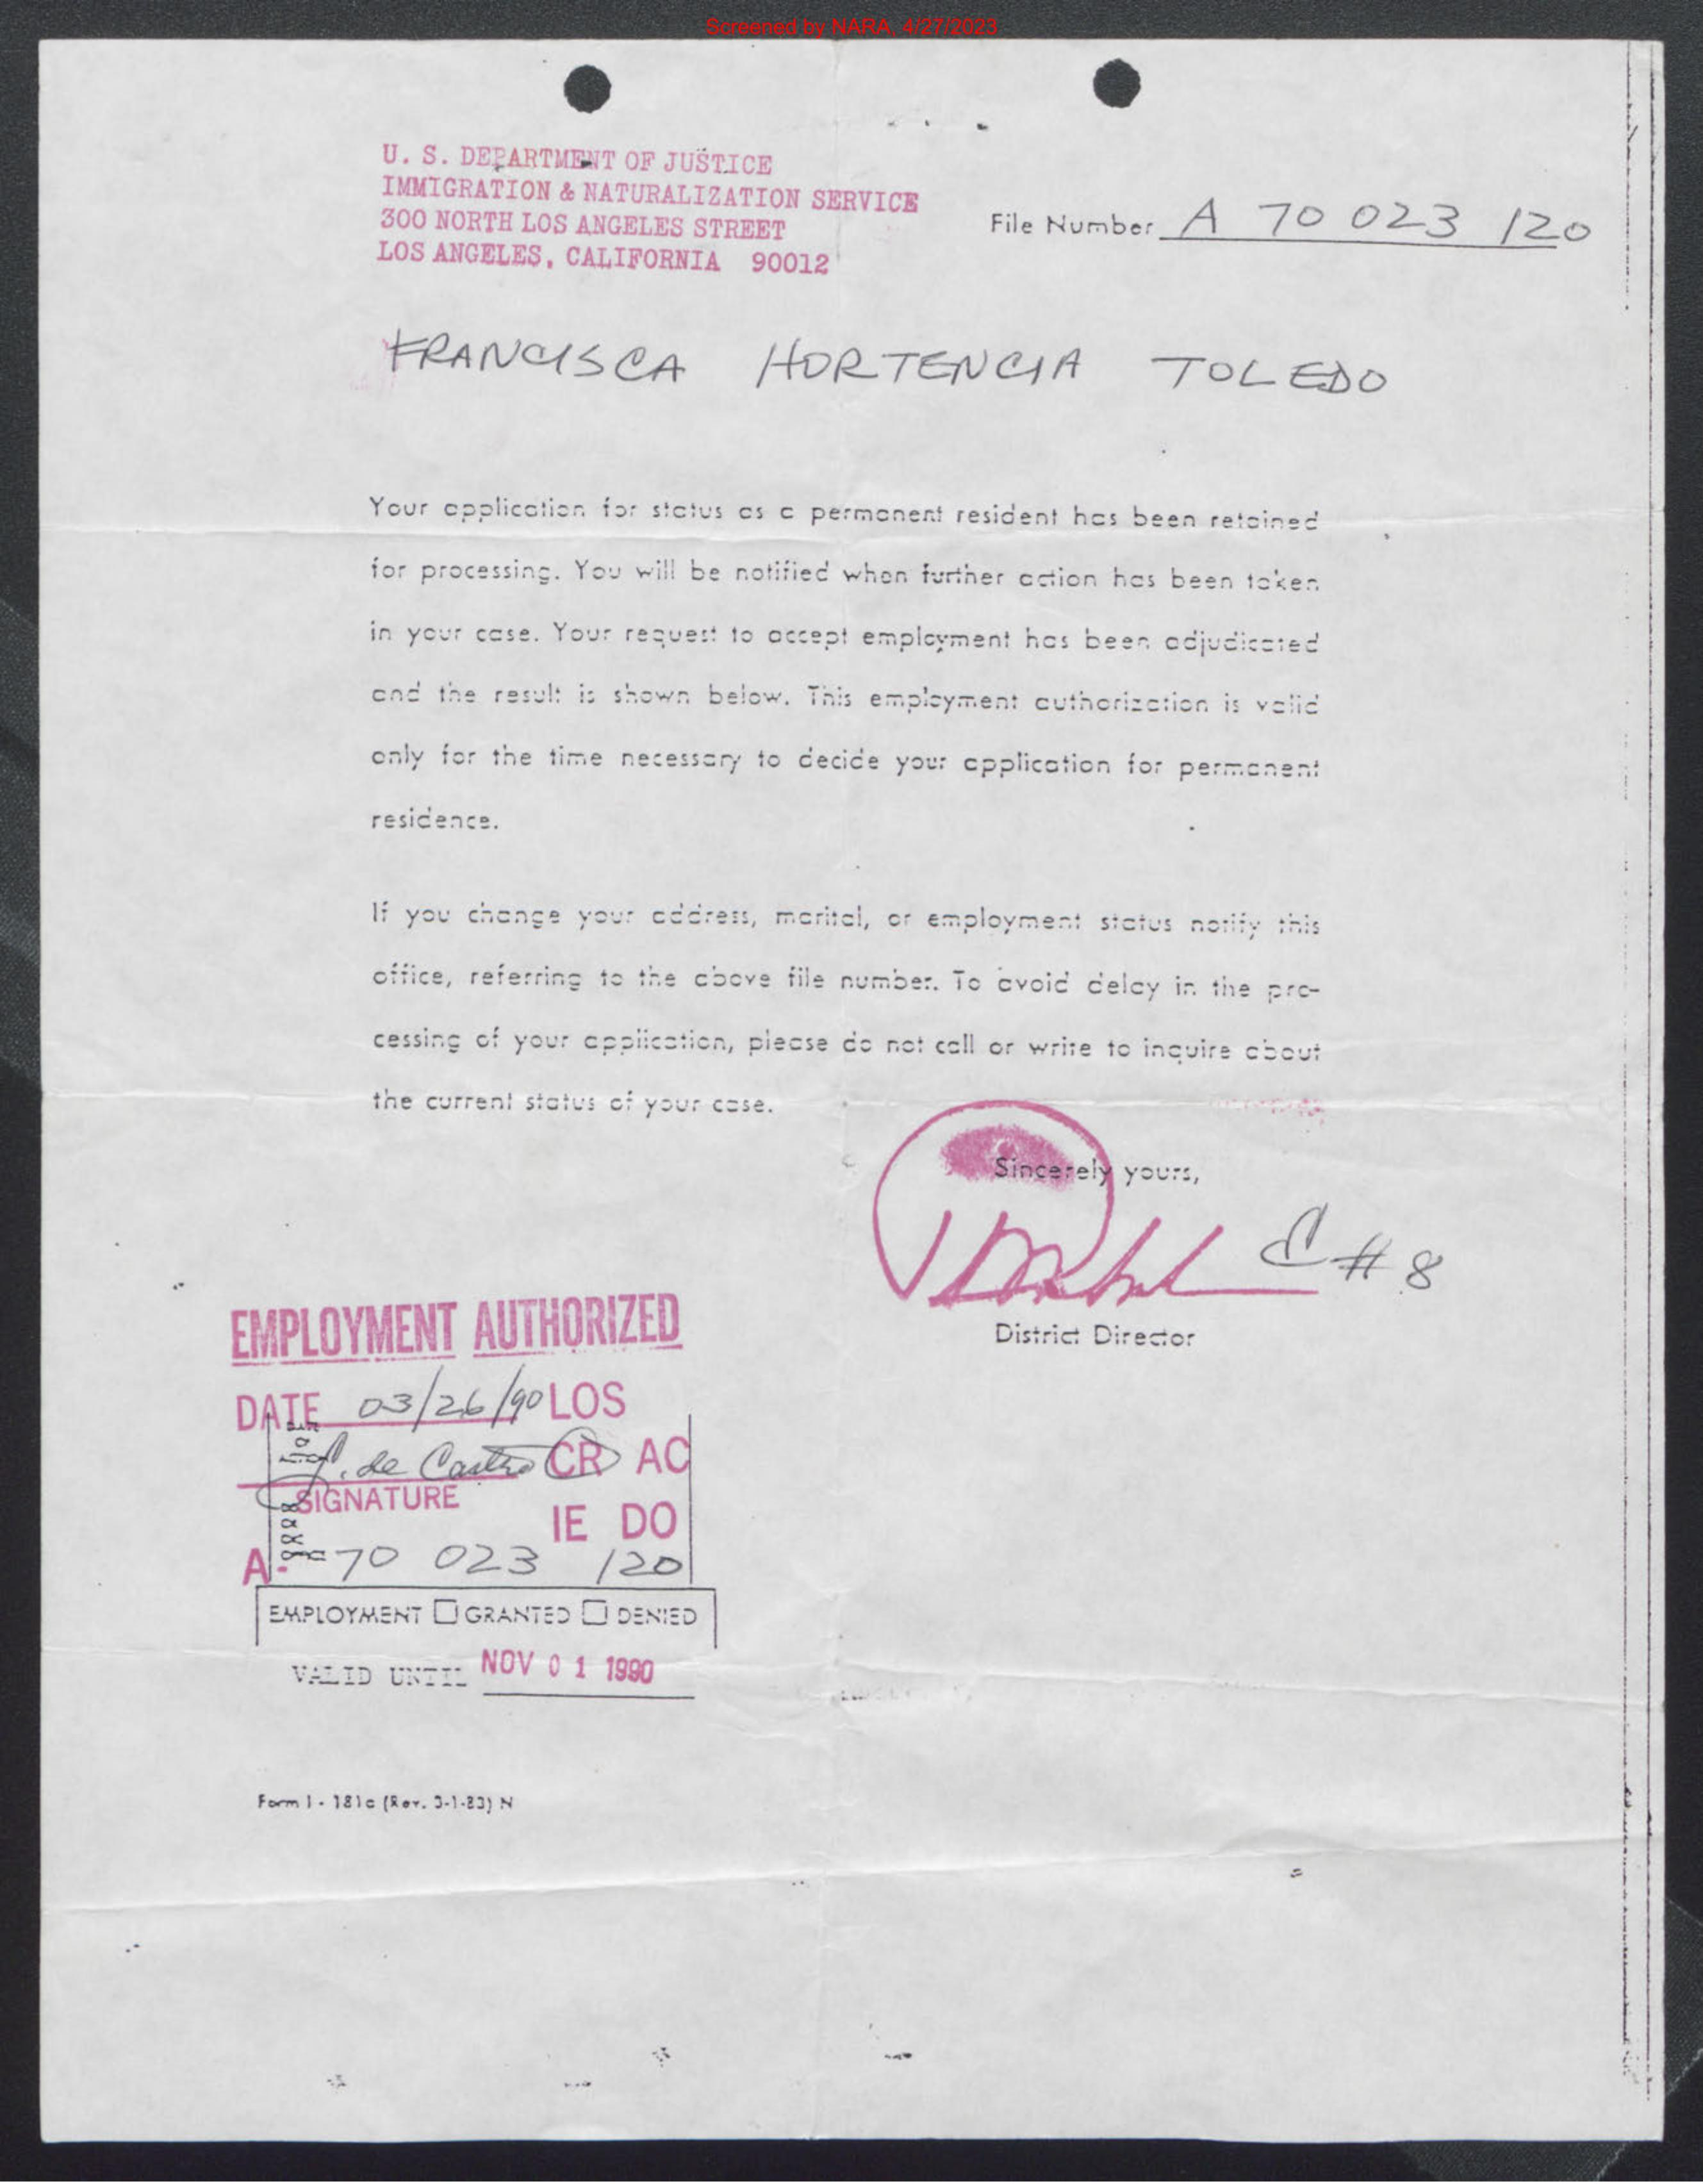 Screened by NARA, 4/27/2023
U. S. DEPARTMENT OF JUSTICE
IMMIGRATION & NATURALIZATION SERVICE
300 NORTH LOS ANGELES STREET
LOS ANGELES, CALIFORNIA 90012
File Number A 70 023 120
FRANCISCA HORTENCIA TOLEDO
Your application for status as a permanent resident has been retained
for processing. You will be notified when further action has been taken
in your case. Your request to accept employment has been adjudicated
and the result is shown below. This employment authorization is valid
only for the time necessary to decide your application for permanent
residence.
If you change your address, marital, or employment status notify this
office, referring to the above file number. To avoid delay in the pro-
cessing of your application, please do not call or write to inquire about
the current status of your case.
Sincerely yours,
C # 8
District Director
EMPLOYMENT AUTHORIZED
DATE 03/26/90 LOS
de Castro CR AC
SIGNATURE
IE DO
A- 70 023 120
EMPLOYMENT GRANTED DENIED
VALID UNTIL NOV 01 1990
Form I - 181c (Rev. 3-1-83) N